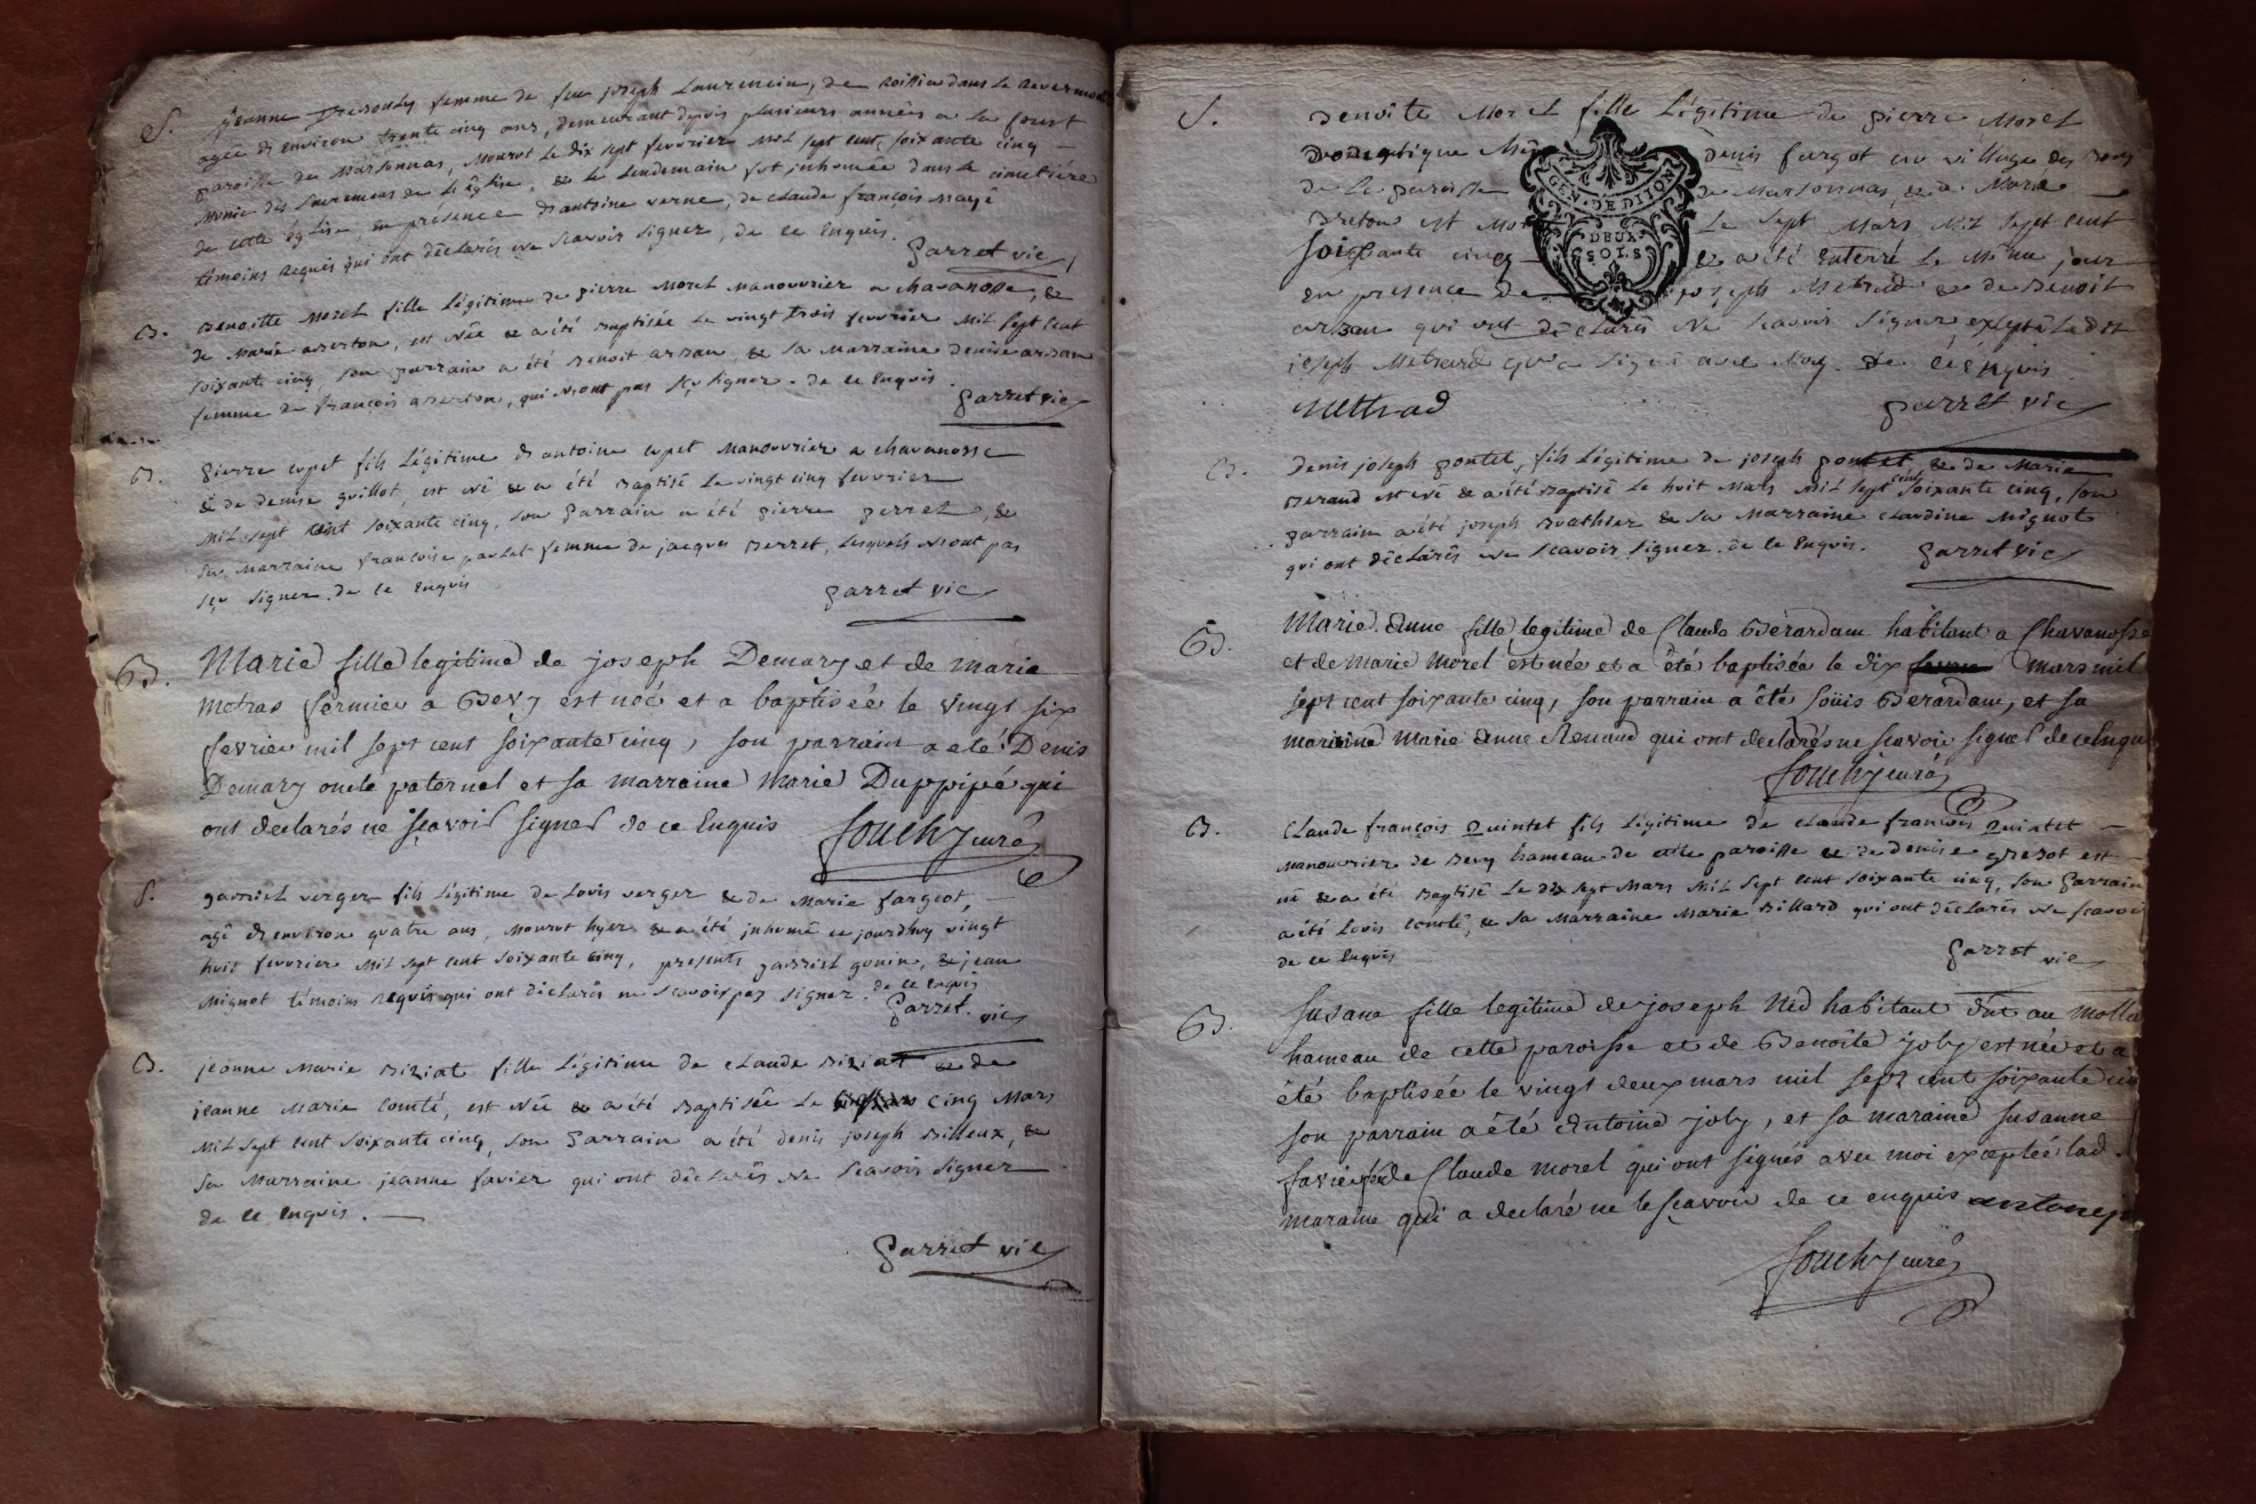 S. jeanne femme de feu joseph Laurencin, de dans le Revermont
agée d'environ trente cinq ans, demeurant depuis plusieurs années a la
paroisse de Marsonnas, Mourut le dix sept fevrier Mil sept cent soixante cinq
Munie des sacremens de L'église, & le Lendemain fut inhumée dans le cimetiére
de cette église, en présence d'antoine verne, de claude françois
témoins requis qui ont déclarés ne scavoir signer, de ce Enquis.
Parret vic
B. Benoitte Morel fille Légitime de pierre Morel Manouvrier a chavanosse, &
de Marie Breton, est Née & a été Baptisée Le vingt trois fevrier Mil sept cent
soixante cinq, son parrain a été Benoit arban, & sa Marraine denise arban
femme de françois Breton, qui N'ont pas sçu signer. de ce Enquis.
Parret vic
B. pierre cupet fils Légitime d'antoine cupet Manouvrier a chavanosse
& de denise guillot, est né & a été Baptisé Le vingt cinq fevrier
Mil sept cent soixante cinq, son Parrain a été pierre perret, &
sa Marraine francoise femme de jacques Berret, Lesquels N'ont pas
sçu signer. de ce Enquis
Parret vic
B. Marie fille legitime de joseph Demary et de marie
metras fermier a Bevy est neé et a baptisée le vingt six
fevrier mil sept cent soixante cinq, son parrain a eté Denis
Demary oncle paternel et sa marraine marie Duppipé qui
ont declarés ne sçavoir signer de ce Enquis
Souchy curé
S. gabriel verger fils Légitime de Lovis verger & de Marie fargeot,
agé d'environ quatre ans, Mourut hyer & a été inhumé ce jourdhuy vingt
huit fevrier Mil sept cent soixante cinq, presents gabriel gonin, & jean
Mignot témoins requis qui ont déclarés ne scavoir pas signer. de ce Enquis
Parret vic
B. jeanne Marie Biziat fille Légitime de claude Biziat & de
jeanne Marie Comté, est Née & a été Baptisée Le cinq Mars
Mil sept cent soixante cinq, son Parrain a été denis joseph Billoux, &
sa Marraine jeanne favier qui ont déclarés Ne scavoir signer
de ce Enquis.
Parret vic
S. Benoite Morel fille Légitime de pierre Morel
Domestique denis furgot au village des
de la paroisse de Marsonnas, & de Marie
Breton est Le sept Mars Mil sept cent
soixante cinq & a été Enterré Le Même jour
GEN. DE DIJON
DEUX
SOLS
En presence de joseph Metrad & de Benoit
arban qui ont déclarés Ne scavoir signer excepté Ledit
joseph Metrard qui a signé avec Moy. de ce Enquis.
Mettrad
Parret vic
B. denis joseph pontet, fils Légitime de joseph pontet, & de Marie
Beraud est né & a été Baptisé Le huit Mars Mil sept cent soixante cinq, son
parrain a été joseph Brathier & sa Marraine claudine Mignot
qui ont déclarés ne scavoir signer. de ce Enquis.
Parret vic
B. Marie Anne fille legitime de Claude Berardam habitant a Chavanosse
et de Marie Morel est née et a été baptisée le dix mars mil
sept cent soixante cinq, son parrain a été Loüis Berardam, et sa
marraine Marie Anne Renaud qui ont declarés ne scavoir signer de ce Enquis
Souchy curé
B. Claude françois Quintet fils Légitime de claude francois Quintet
Manouvrier de Bevy hameau de cette paroisse & de denise grebot est
né & a été Baptisé Le dix sept Mars Mil sept cent soixante cinq, son Parrain
a été Lovis comté, & sa Marraine Marie Billard qui ont déclarés Ne scavoir
de ce Enquis
Parret vic
B. Susane fille legitime de joseph Nid habitant dit au Molla
hameau de cette paroisse et de Benoîte joly est née et a
été baptisée le vingt deux mars mil sept cent soixante cin
son parrain a été Antoine joly, et sa maraine susanne
favier fe de Claude morel qui ont signés avec moi exceptée lad.
maraine qui a declaré ne le sçavoir de ce enquis antone
Souchy curé